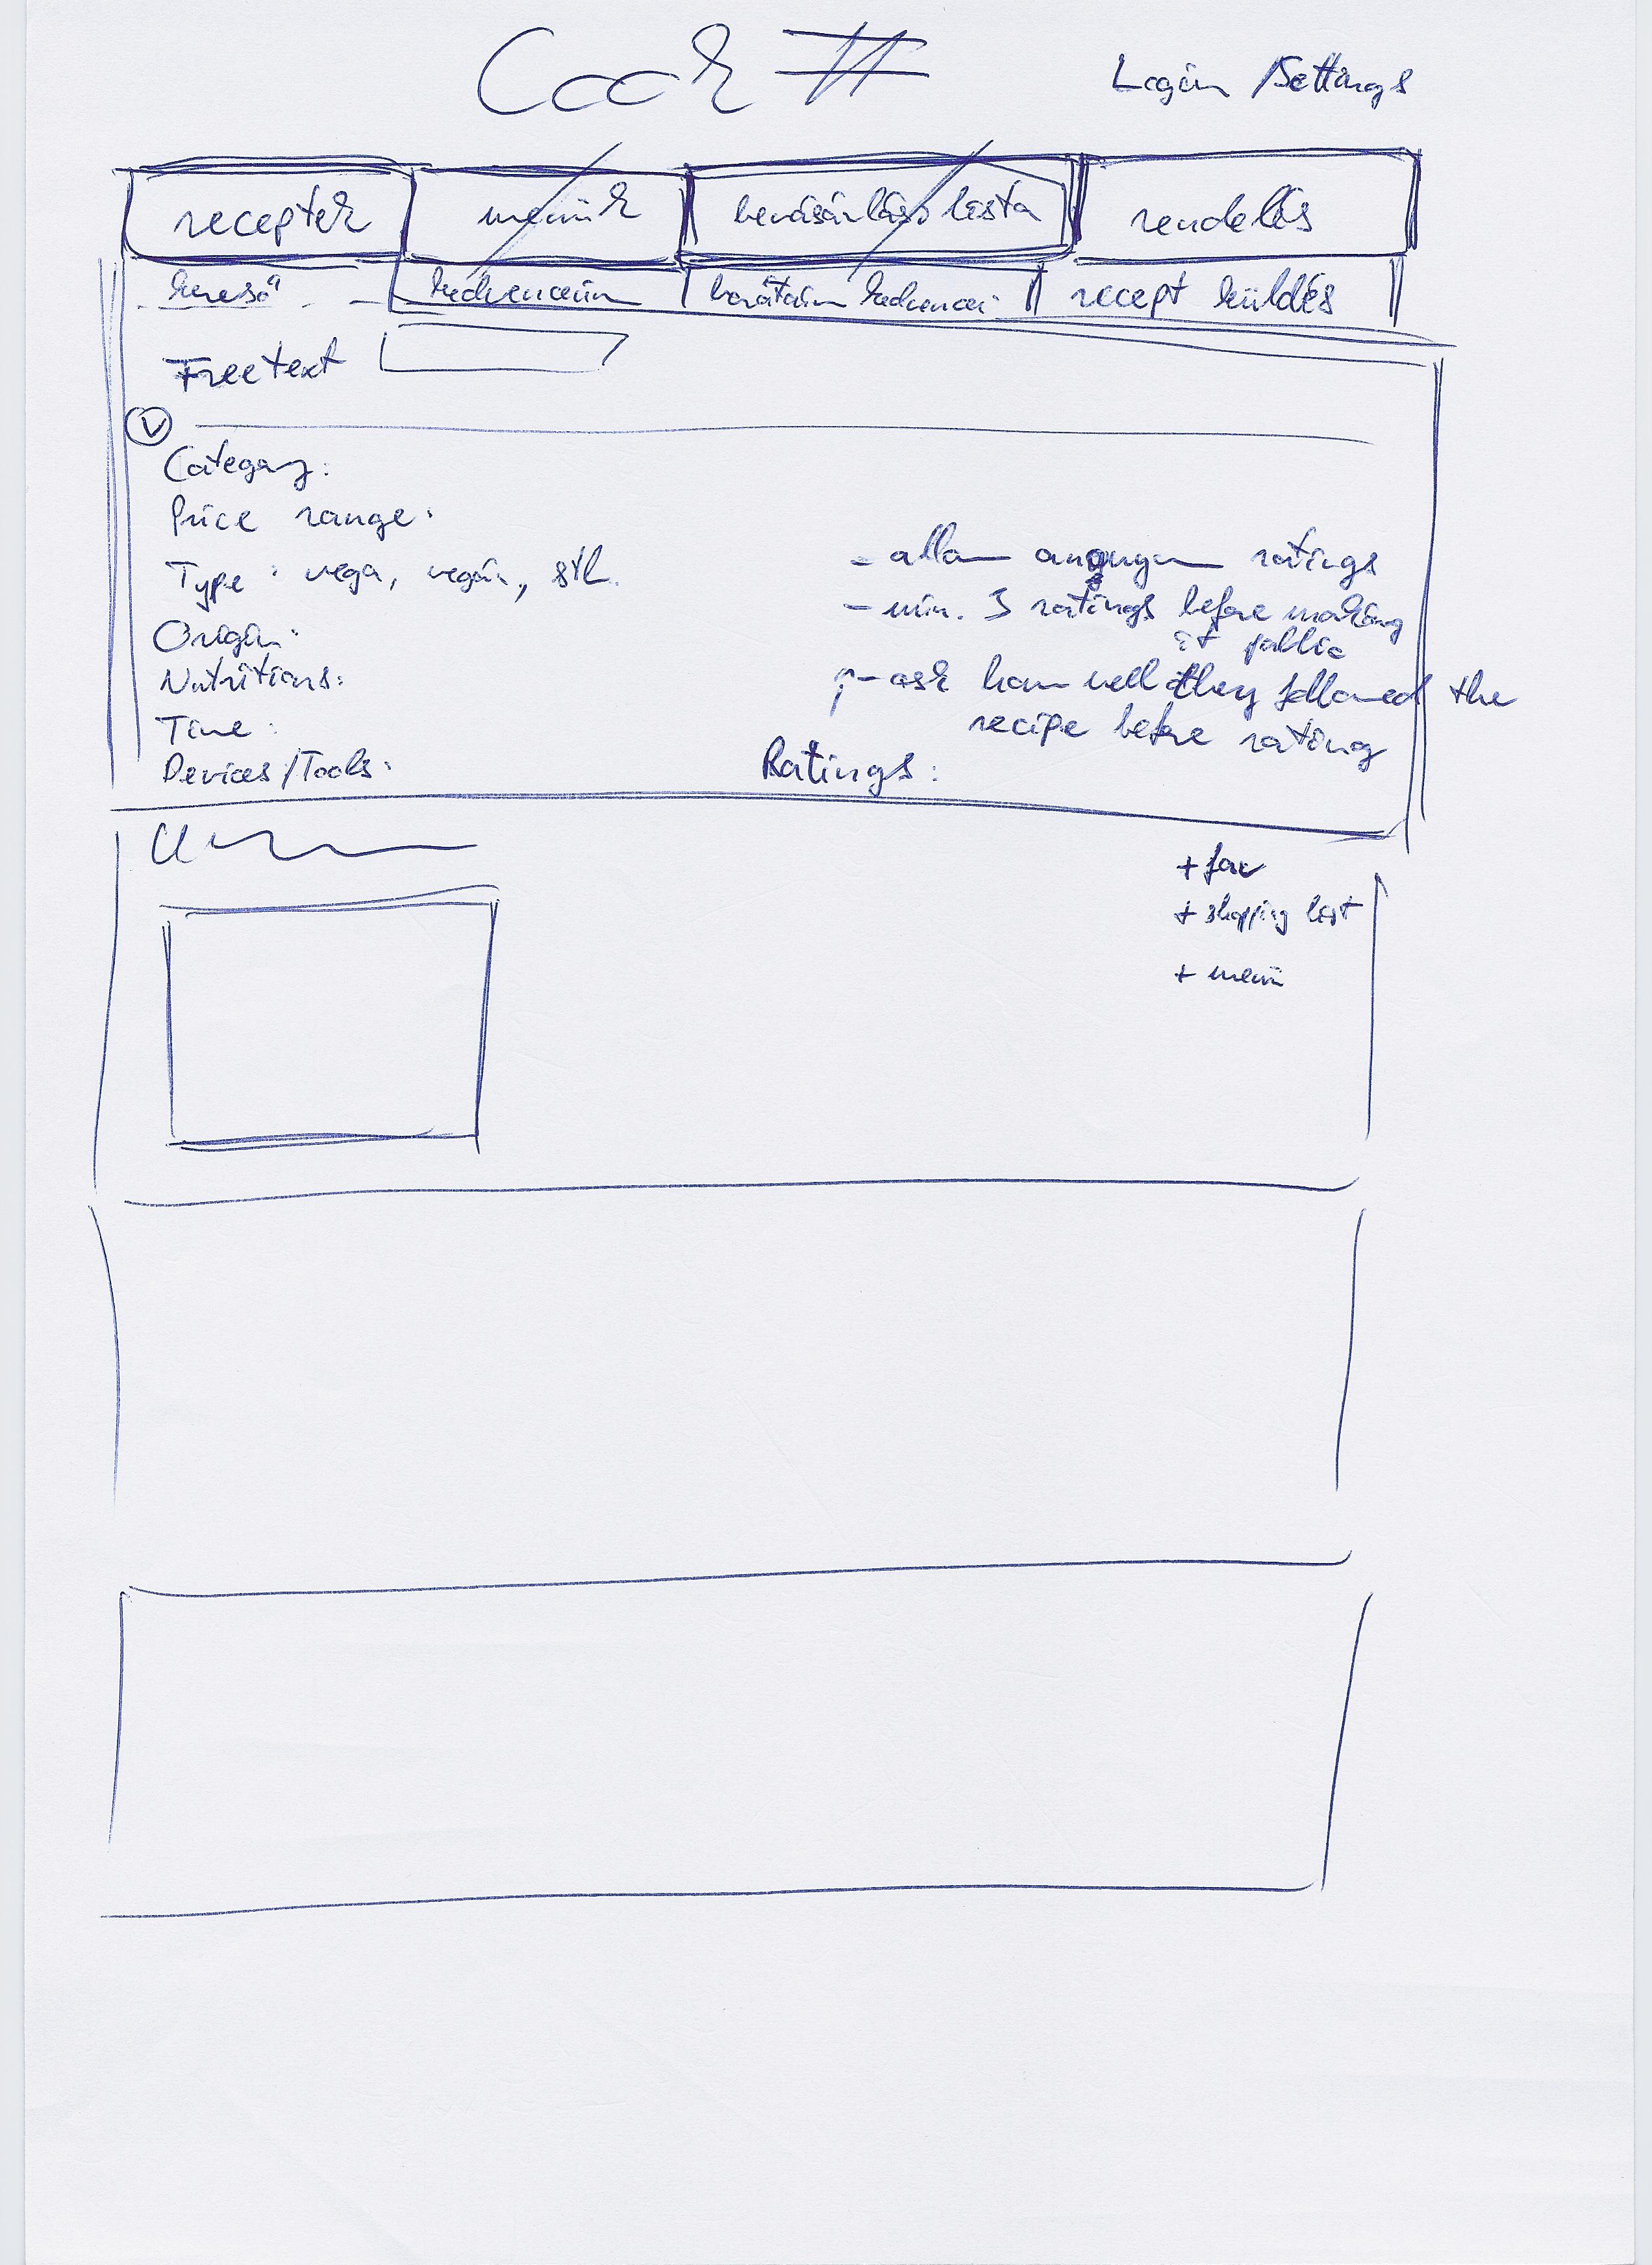 Cook #
Login /Settings
receptek
menük
bevásárlási lista
rendelés
kereső
kedvenceim
barátaim kedvencei
recept küldés
Freetext
Category:
Price range:
Type: vega, vegán, stb.
Origin:
Nutritions:
Time:
Devices/Tools:
- allow ratings
- min. 3 ratings before making
it public
- ask how well they followed the
recipe before rating
Ratings:
+ fav
+ shopping list
+ menü